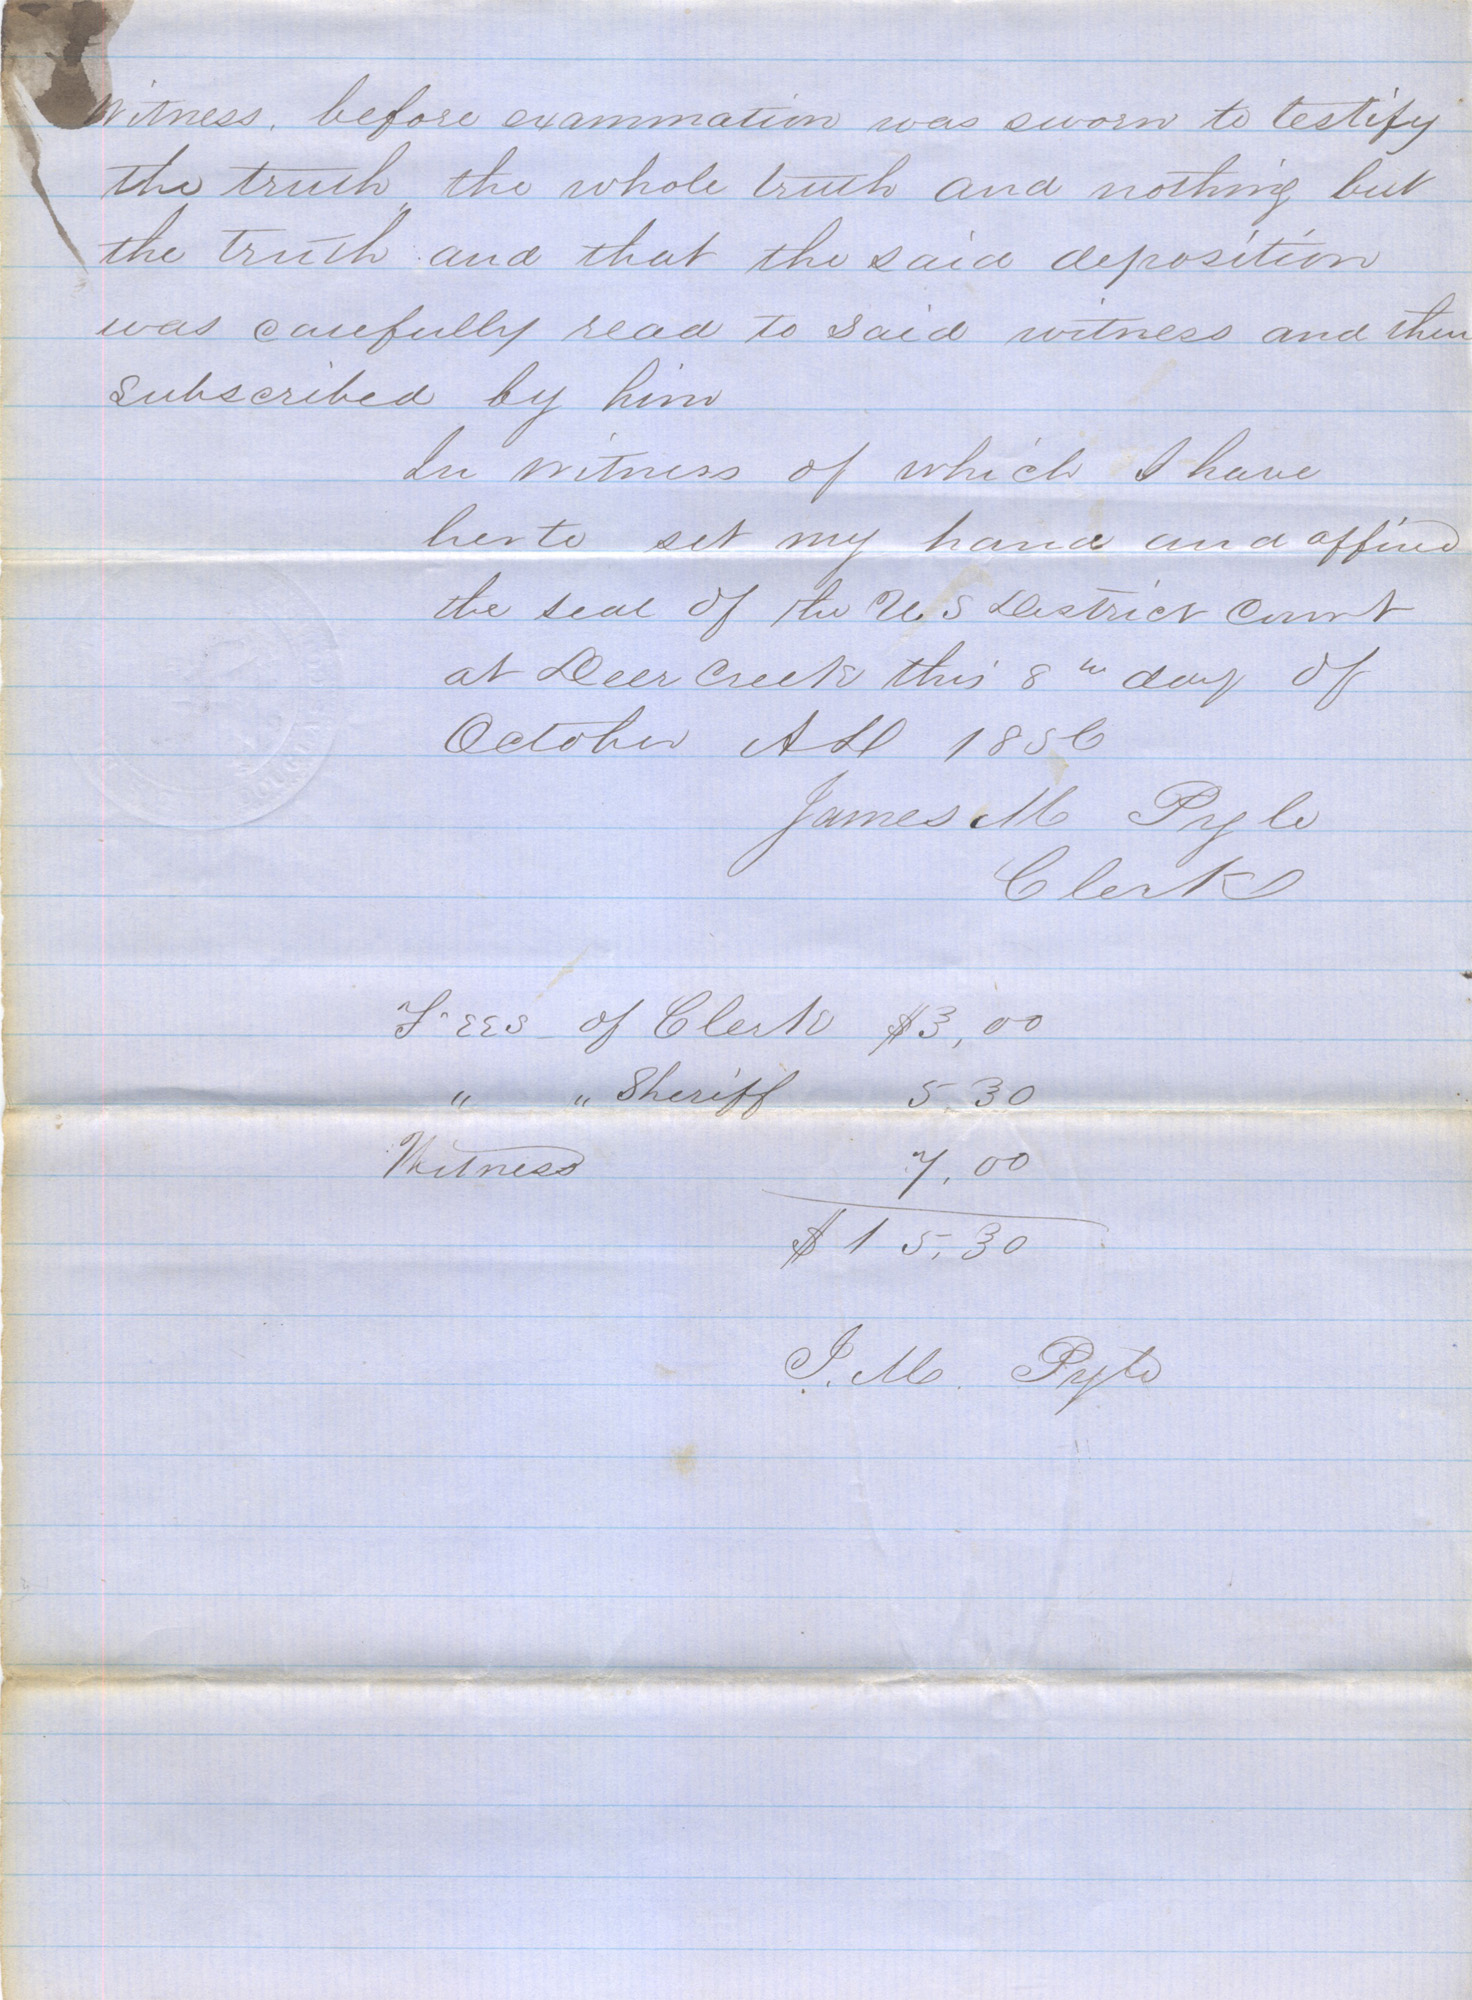 Witness, before examination was sworn to testify
the truth, the whole truth and nothing but
the truth and that the said deposition
was carefully read to said witness and then
subscribed by him
In witness of which I have
herto set my hand and affixed
the seal of the U S District Court
at Deer Creek this 8th day of
October AD 1856
James M Pyle
Clerk
Fees of Clerk $3,00
" " Sheriff 5.30
Witness 7,00
$15,30
J. M. Pyle